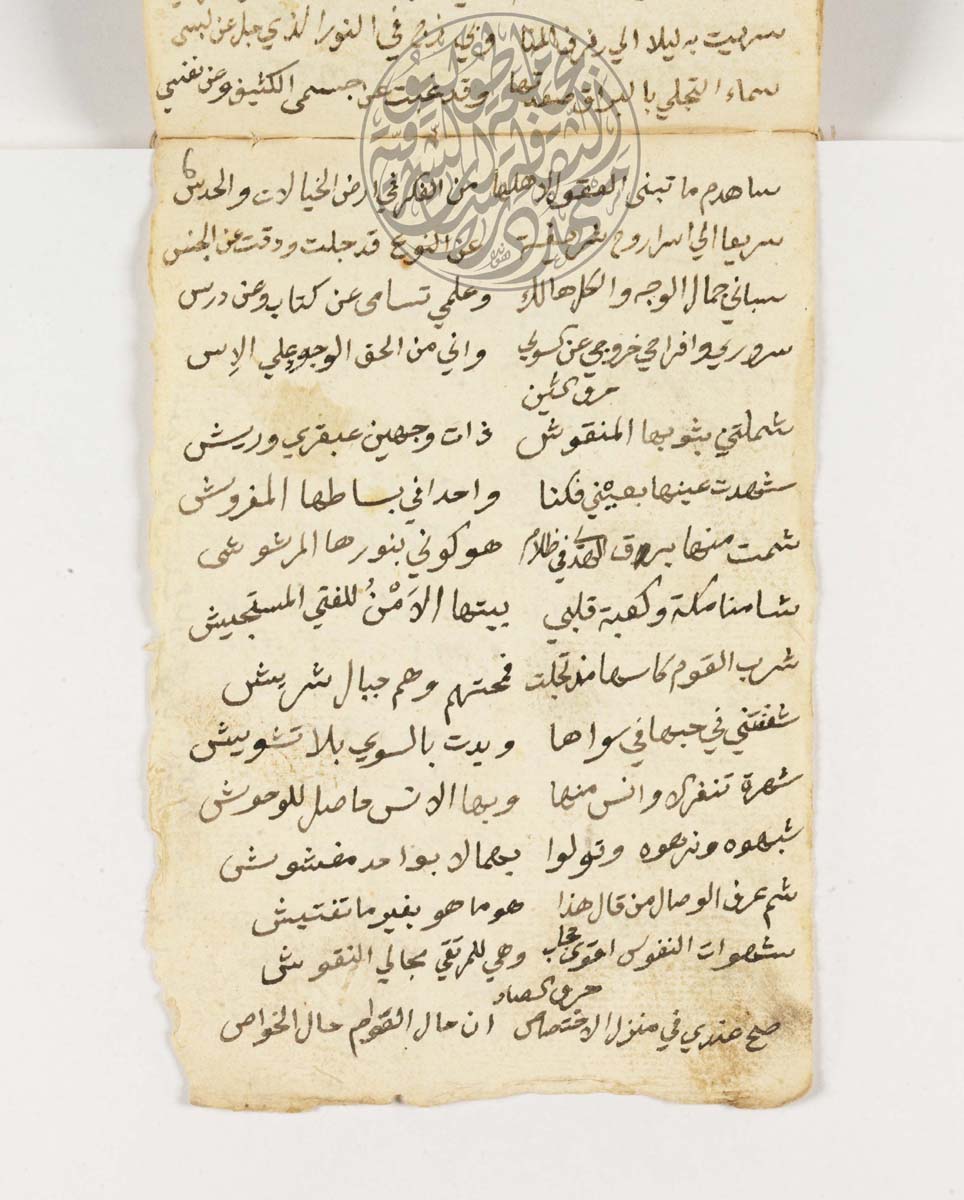 سريت به ليلا الي رفرف المنا وبي زج في النور الذي جل عن لبسى
سماء التجلي بالبراق صعدتها وقد غبت عن جسمى الكثيف وعن نفسي
ساهدم ما تبنى العقول لاهلها من الفكر في ارض الخيالات والحدس
سريعا الي اسرار روح شريفة عن النوع قد جلت ودقت عن الجنس
سباني جمال الوجه والكل هالك وعلمي تسامى عن كتاب وعن درس
سروري وافراحي خروجي عن السوي واني من الحق الوجود علي الاس
حرف الشين
شملتني بثوبها المنقوش ذات وجهين عبقري وريش
شهدت عينها بعيني فكنا واحدا في بساطها المفروش
شمت منها برق الهدي في ظلام هو كوني بنورها المرشوش
شامنا مكة وكعبة قلبي بيتها الاَمْنُ للفتي المستجيش
شرب القوم كاسها مذ تجلت فمحتهم وهم جبال شريش
شغفتني في حبها في سواها وبدت بالسوي بلا تشويش
شهرة تنفر الاوانس منها وبها الانس حاصل للوحوش
شبهوه ونزهوه وتولوا بهما لا بواحد مغشوش
شم عرف الوصال من قال هذا هو ما هو بغير ما تفتيش
شهوات النفوس اقوي حجاب وهي للمرتقي مجالي النقوش
حرف الصاد
صح عندي في منزل الاختصاص ان حال العوام حال الخواص